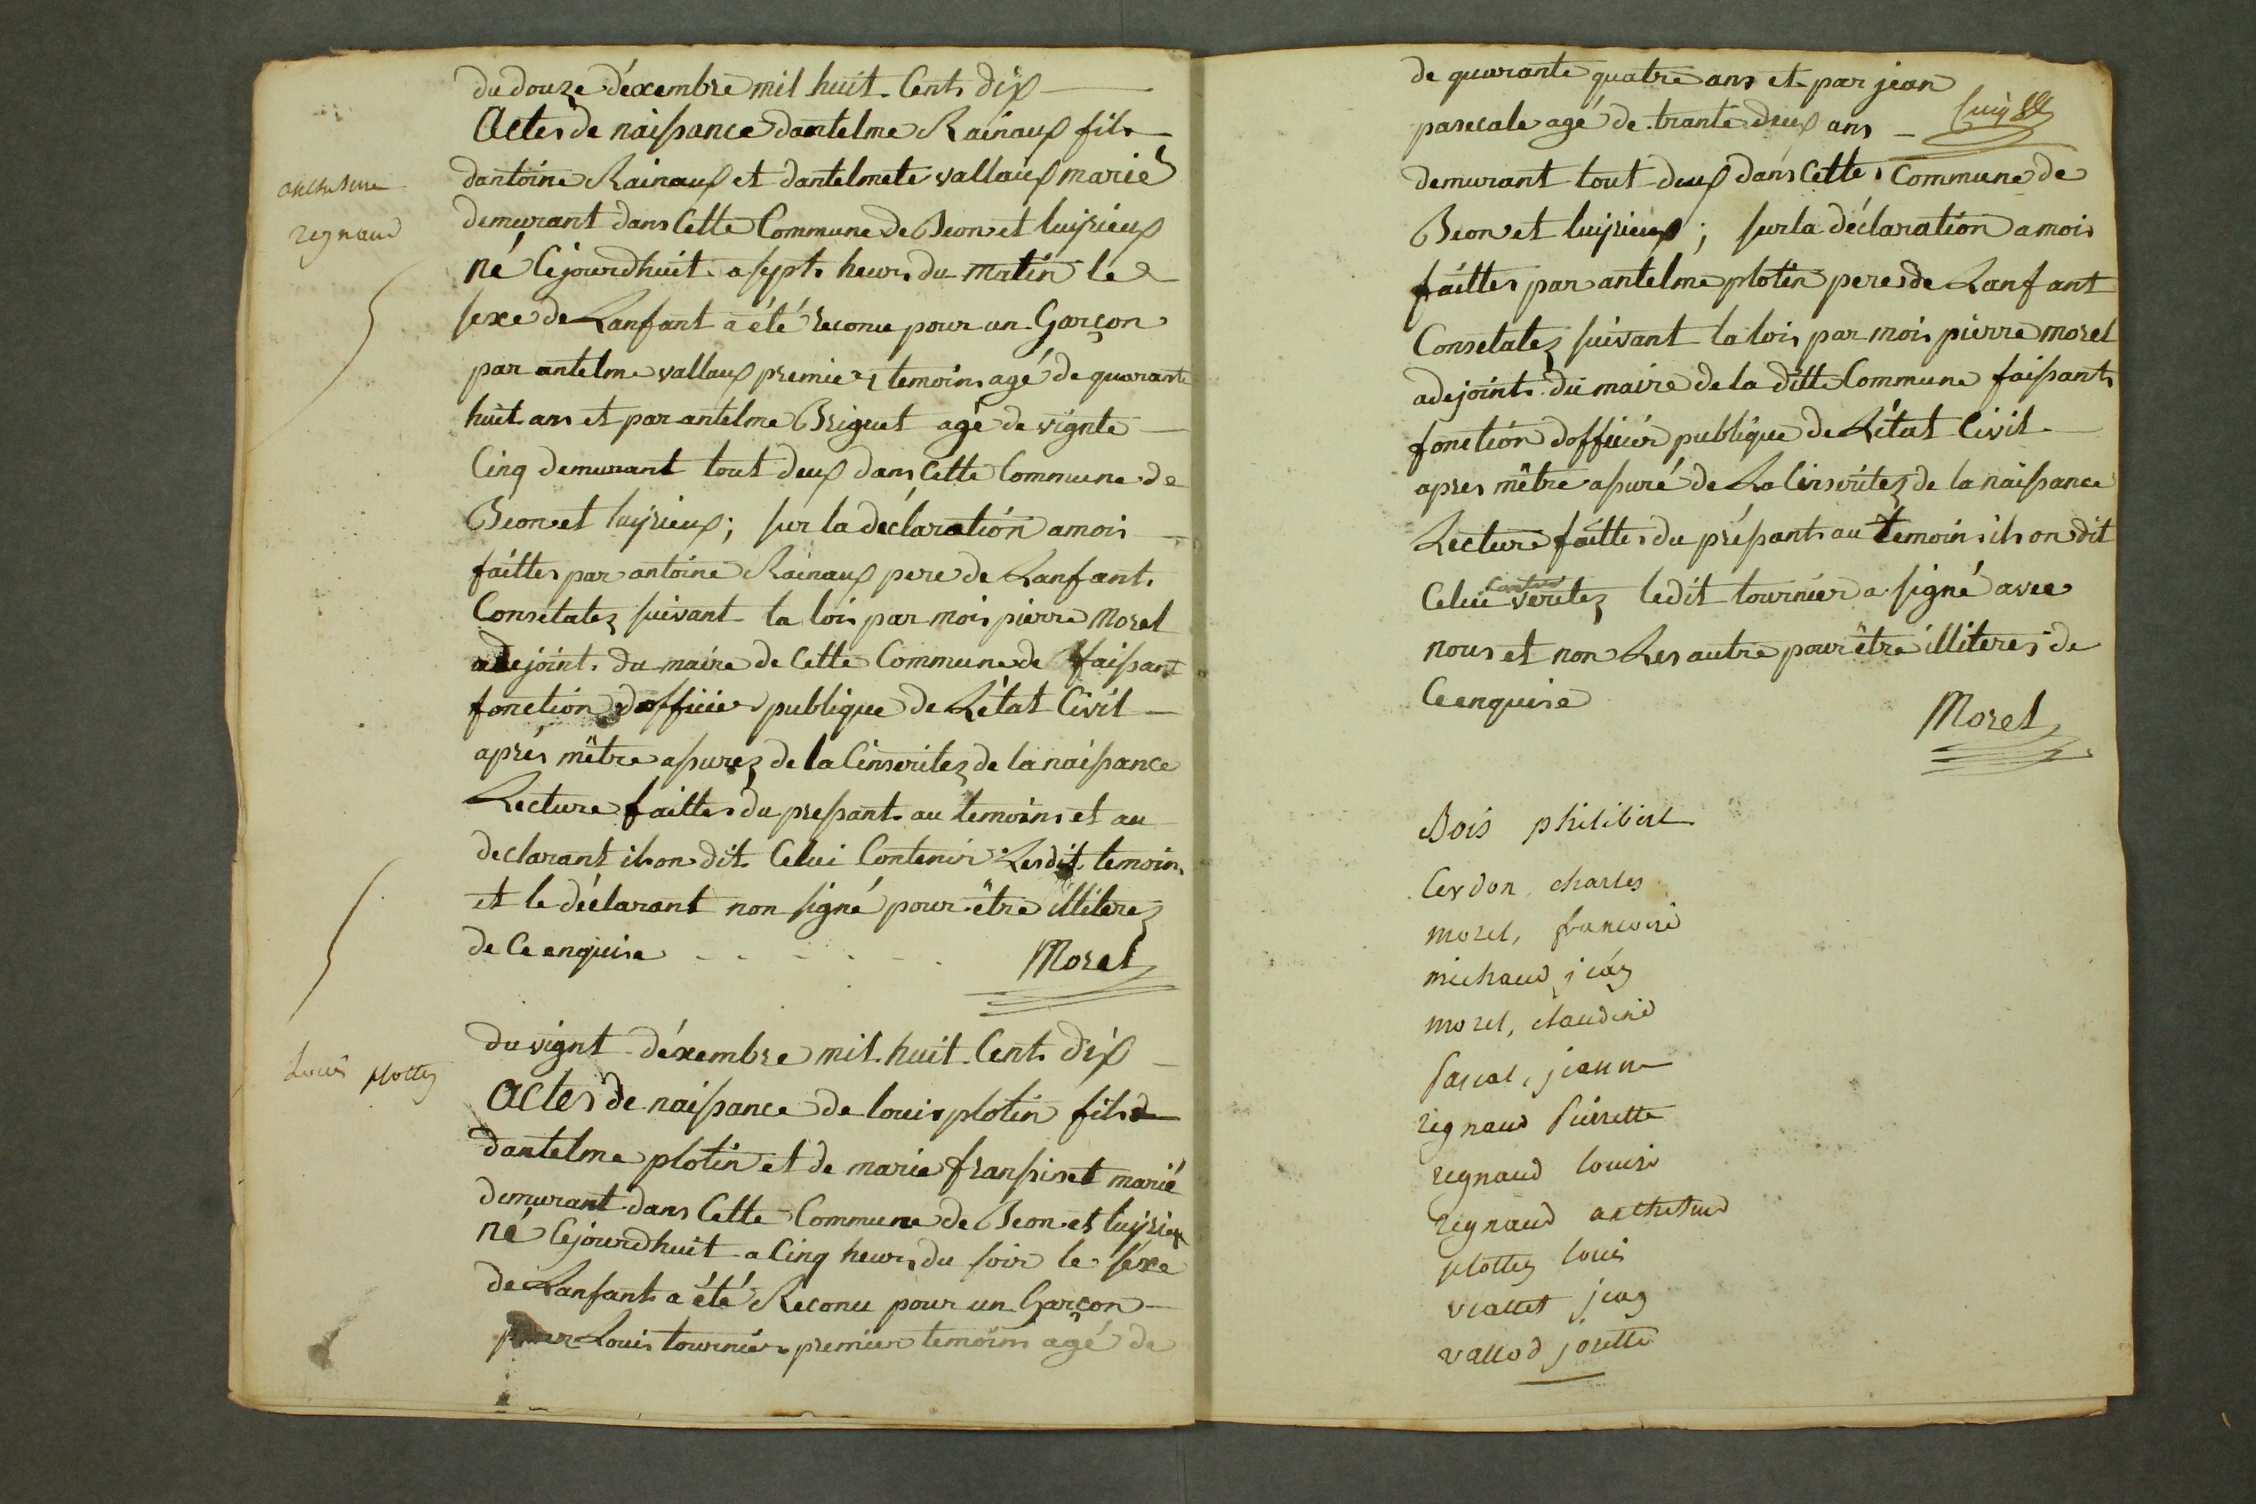 du douze déxembre mil huit. Cent. dix
Actes de naissance dantelme Rainaux fils
anthelme
regnaud
dantoine Rainaux et dantelmete vallaux marié
demurant dans Cette Commune de Beon et luyrieux
né Cejourdhuit a sept. heurs du matin le
sexe de Lanfant a été reconu pour un Garçon
par antelme vallaux premier temoins agé de quarante
huit ans et par antelme Briguet agé de vignte
Cinq demurant tout deux dans Cette Commune de
Beon et luyrieux; sur la déclaration a mois
faittes par antoine Rainaux pere de Lanfant.
Consetatez suivant la lois par mois pierre Morel
adejoint. du maire de Cette Commune de faissant
fonction d'officier publique de L'état Civil
aprés mêtre assurez de la Cinseritez de la naissance
Lecture faittes du pressant. au temoins et au
declarant ils on dit. Celui Contenir Lesdit temoins
et le déclarant non signé pour être illiterez
de Ce enquise Morel
du vignt déxembre mil. huit. Cent. dix
Louis plottin
Actes de naissance de louis plotin fils
dantelme plotin et de marie franssinet marié
demurant dans Cette Commune de Beon et luyrieux
né Cejourdhuit a Cinq heurs du soir le sexe
de Lanfant. a été Reconu pour un Garçon
par Louis tournier premier temoins agé de
de quarante quatre ans et par jean
pasecale agé de trante deux ans
demurant tout deux dans Cettes Commune de
Beon et luyrieux; sur la déclaration a mois
faittes par antelme plotin pere de Lanfant
Consetatez suivant la lois par mois pierre morel
adejoint. du maire de la ditte Commune faissant
fonction dofficier publique de L'état Civil
apres mêtre assuré de La Cinseritez de la naissance
Lecture faittes du préssant. au temoins ils on dit
Celui veritez ledit tournier a signé avec
nous et non Les autre pour être illiteres de
Ce enquise
Morel
Bois philibert
Cerdon charles
morel, francoise
michaud jean
morel, claudine
pascal, jeanne
regnaud Pierrette
regnaud louise
regnaud anthelme
plottin louis
viallet jean
vallod josette